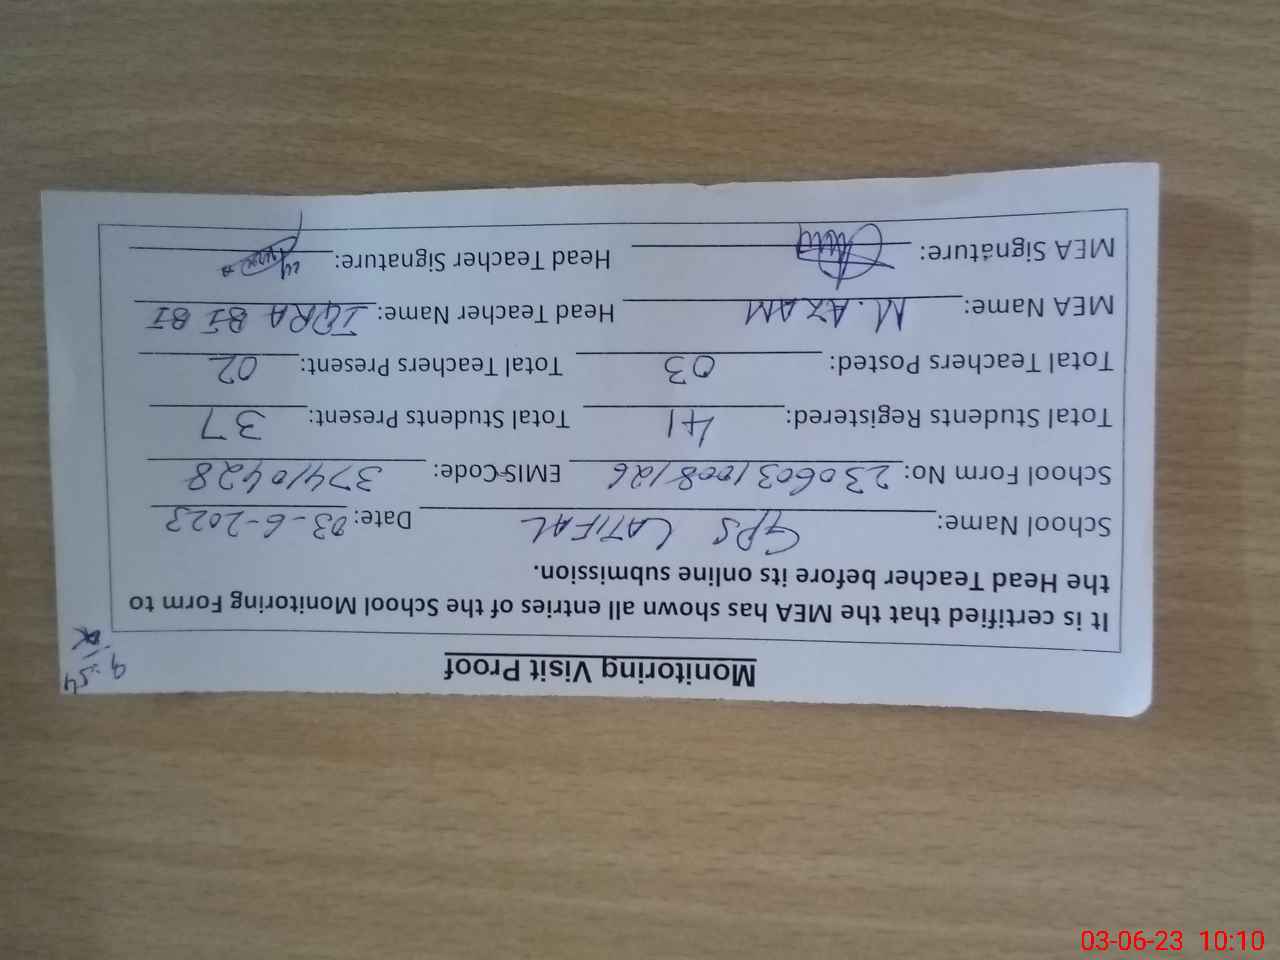 9:54
Monitoring Visit Proof
It is certified that the MEA has shown all entries of the School Monitoring Form to
the Head Teacher before its online submission.
School Name: GPS LATIFAL Date: 03-6-2023
School Form No: 2306031008126 EMIS Code: 37410428
Total Students Registered: 41 Total Students Present: 37
Total Teachers Posted: 03 Total Teachers Present: 02
MEA Name: M. AZAM Head Teacher Name: IQRA BI BI
MEA Signature: Head Teacher Signature:
03-06-23 10:10